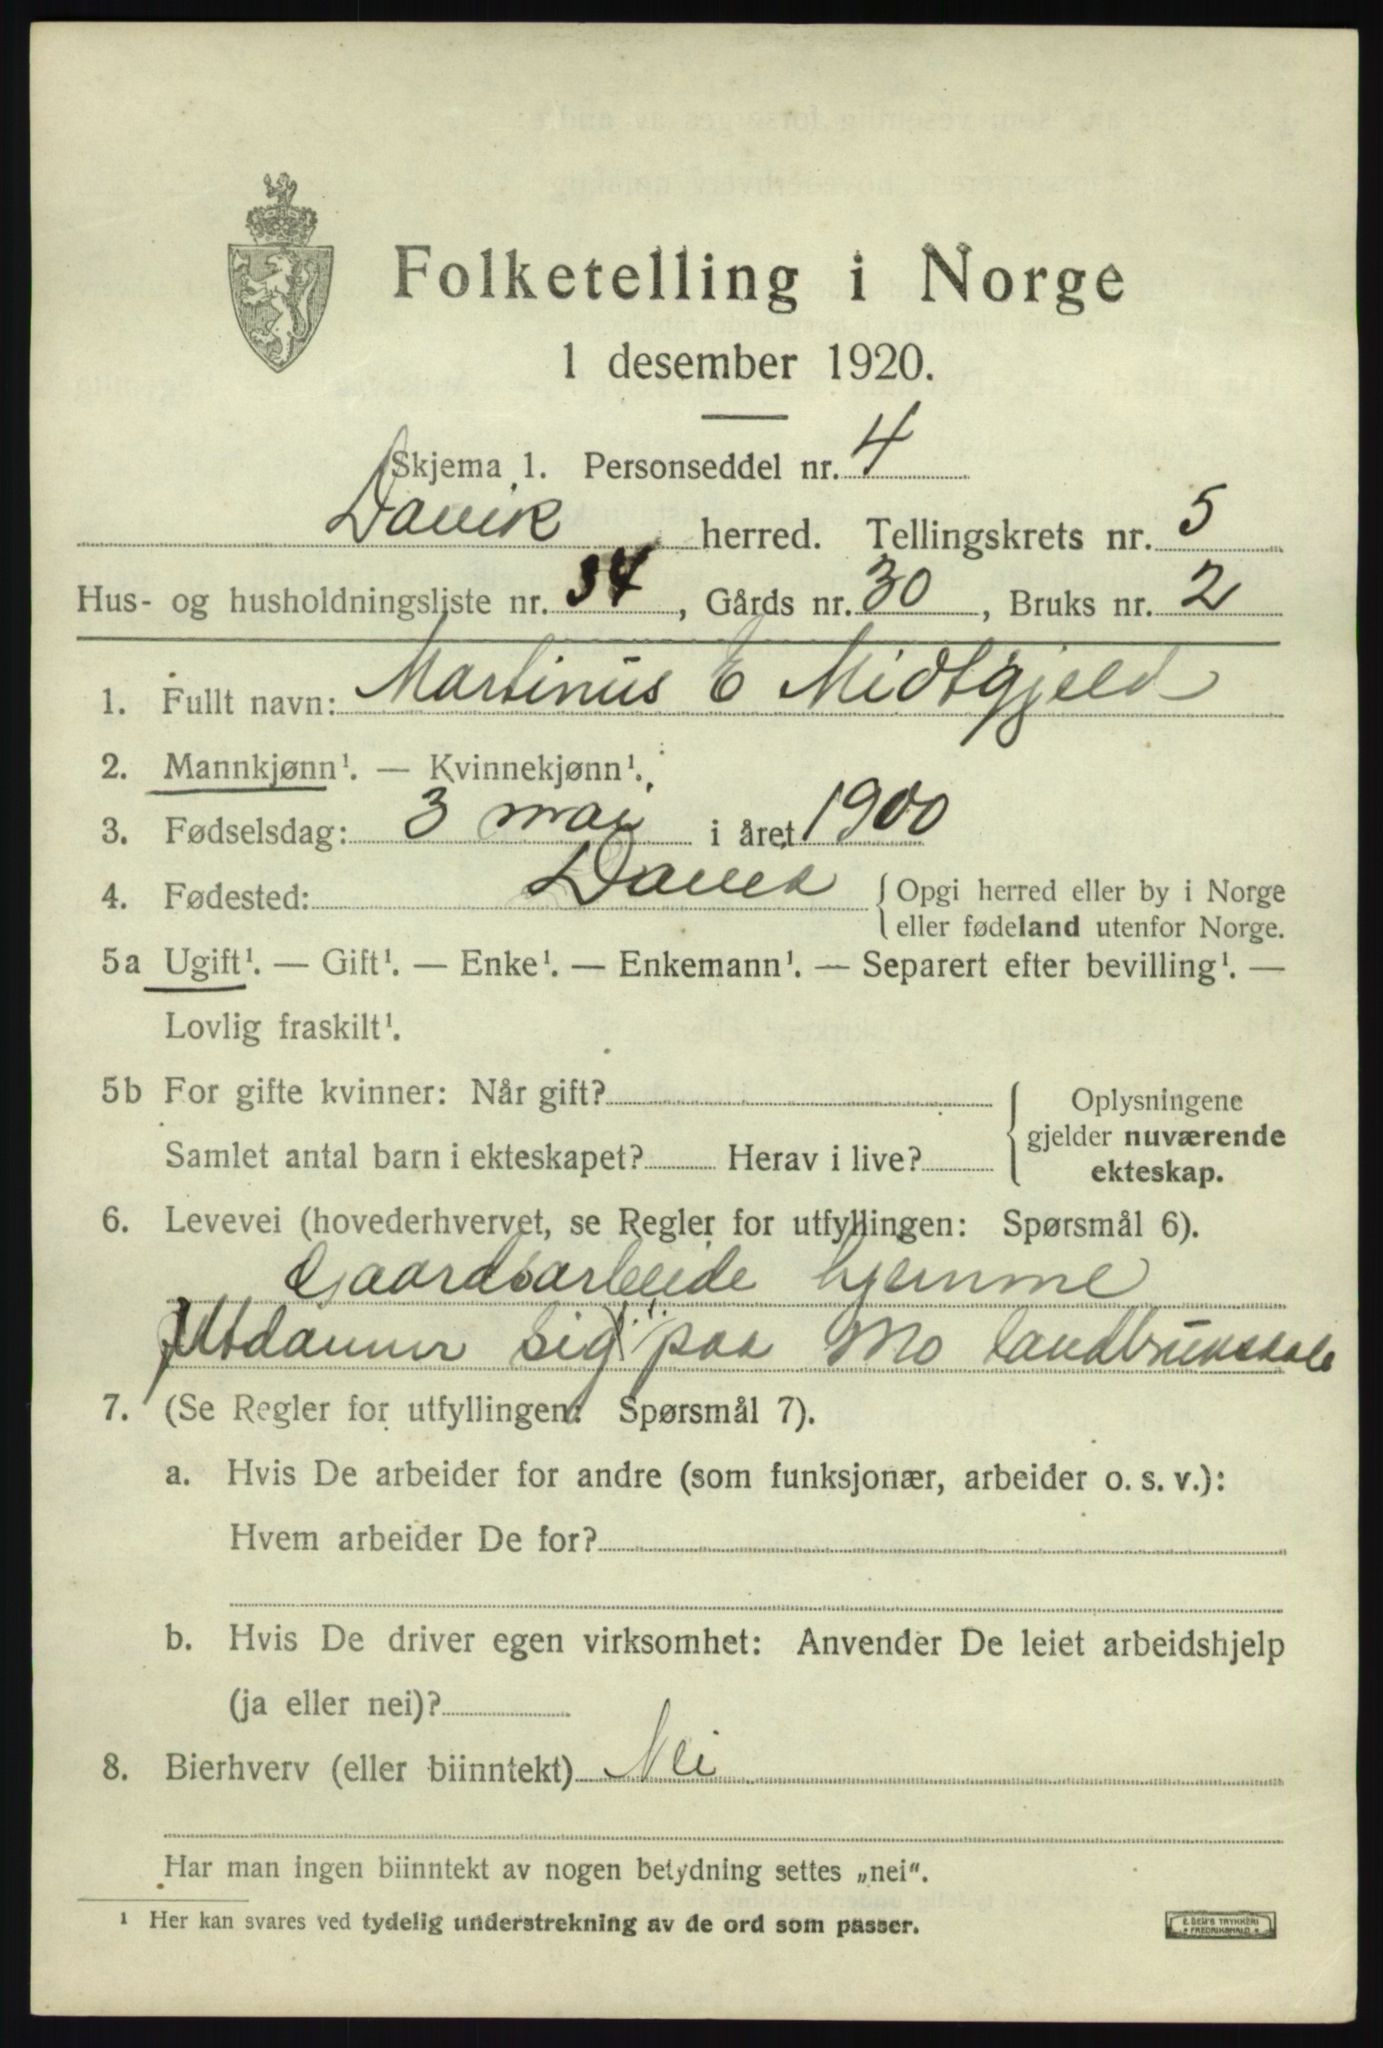 Folketelling i Norge
1 desember 1920.
Skjema 1. Personseddel nr. 4
Davik herred. Tellingskrets nr. 5
Hus- og husholdningsliste nr. 34, Gårds nr. 30, Bruks nr. 2
1. Fullt navn: Martinus E Midtgjeld
2. Mannkjønn¹. — Kvinnekjønn¹.
3. Fødselsdag: 3 mai i året 1900
4. Fødested: Davik { Opgi herred eller by i Norge
eller fødeland utenfor Norge.
5a Ugift¹. — Gift¹. — Enke¹. — Enkemann¹. — Separert efter bevilling¹. —
Lovlig fraskilt¹.
5b For gifte kvinner: Når gift? { Oplysningene
gjelder nuværende
Samlet antal barn i ekteskapet? Herav i live? ekteskap.
6. Levevei (hovederhvervet, se Regler for utfyllingen: Spørsmål 6).
Gaardsarbeide hjemme
Utdanner sig paa Mo landbrukskole
7. (Se Regler for utfyllingen: Spørsmål 7).
a. Hvis De arbeider for andre (som funksjonær, arbeider o. s. v.):
Hvem arbeider De for?
b. Hvis De driver egen virksomhet: Anvender De leiet arbeidshjelp
(ja eller nei)?
8. Bierhverv (eller biinntekt) Nei
Har man ingen biinntekt av nogen betydning settes „nei“.
¹ Her kan svares ved tydelig understrekning av de ord som passer.
E. SEM'S TRYKKERI
FREDRIKSHALD